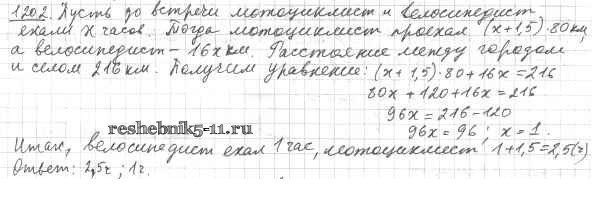 1202. Пусть до встречи мотоциклист и велосипедист
ехали x часов. Тогда мотоциклист проехал (x+1,5)·80 км,
а велосипедист - 16x км. Расстояние между городом
и селом 216 км. Получим уравнение: (x+1,5)·80+16x=216
80x+120+16x=216
96x=216-120
reshebnik5-11.ru
96x=96; x=1.
Итак, велосипедист ехал 1 час, мотоциклист 1+1,5=2,5(ч)
Ответ: 2,5ч; 1ч.